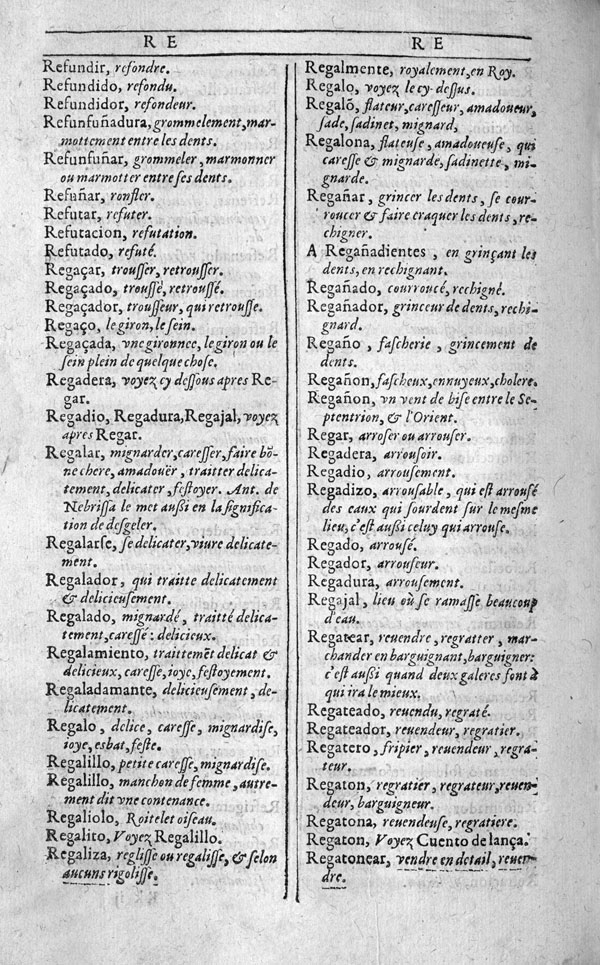 R E
Refundir, refondre.
Refundido, refondu.
Refundidor, refondeur.
Refunfuñadura, grommelement, mar-
mottement entre les dents.
Refunfuñar, grommeler, marmonner
ou marmotter entre ses dents.
Refuñar, ronfler.
Refutar, refuter.
Refutacion, refutation.
Refutado, refuté.
Regaçar, trousser, retrousser.
Regaçado, troussé, retroussé.
Regaçador, trousseur, qui retrousse.
Regaço, le giron, le sein.
Regaçada, vne gironnee, le giron ou le
sein plein de quelque chose.
Regadera, voyez cy dessous apres Re-
gar.
Regadio, Regadura, Regajal, voyez
apres Regar.
Regalar, mignarder, caresser, faire bõ-
ne chere, amadouër, traitter delica-
tement, delicater, festoyer. Ant. de
Nebrissa le met aussi en la significa-
tion de desgeler.
Regalarse, se delicater, viure delicate-
ment.
Regalador, qui traitte delicatement
& delicieusement.
Regalado, mignardé, traitté delica-
tement, caressé: delicieux.
Regalamiento, traittemẽt delicat &
delicieux, caresse, ioye, festoyement.
Regaladamante, delicieusement, de-
licatement.
Regalo, delice, caresse, mignardise,
ioye, esbat, feste.
Regalillo, petite caresse, mignardise.
Regalillo, manchon de femme, autre-
ment dit vne contenance.
Regaliolo, Roitelet oiseau.
Regalito, Voyez Regalillo.
Regaliza, reglisse ou regalisse, & selon
aucuns rigolisse.
R E
Regalmente, royalement, en Roy.
Regalo, voyez le cy-dessus.
Regalõ, flateur, caresseur, amadoueur,
sade, sadinet, mignard,
Regalona, flateuse, amadoueuse, qui
caresse & mignarde, sadinette, mi-
gnarde.
Regañar, grincer les dents, se cour-
roucer & faire craquer les dents, re-
chigner.
A Regañadientes, en grinçant les
dents, en rechignant.
Regañado, courroucé, rechigné.
Regañador, grinceur de dents, rechi-
gnard.
Regaño, fascherie, grincement de
dents.
Regañon, fascheux, ennuyeux, cholere.
Regañon, vn vent de bise entre le Se-
ptentrion, & l'Orient.
Regar, arroser ou arrouser.
Regadera, arrousoir.
Regadio, arrousement.
Regadizo, arrousable, qui est arrousé
des eaux qui sourdent sur le mesme
lieu, c'est aussi celuy qui arrouse.
Regado, arrousé.
Regador, arrouseur.
Regadura, arrousement.
Regajal, lieu où se ramasse beaucoup
d'eau.
Regatear, reuendre, regratter, mar-
chander en barguignant, barguigner:
c'est aussi quand deux galeres font à
qui ira le mieux.
Regateado, reuendu, regraté.
Regateador, reuendeur, regratier.
Regatero, fripier, reuendeur, regra-
teur.
Regaton, regratier, regrateur, reuen-
deur, barguigneur.
Regatona, reuendeuse, regratiere.
Regaton, Voyez Cuento de lança.
Regatonear, vendre en detail, reuen-
dre.